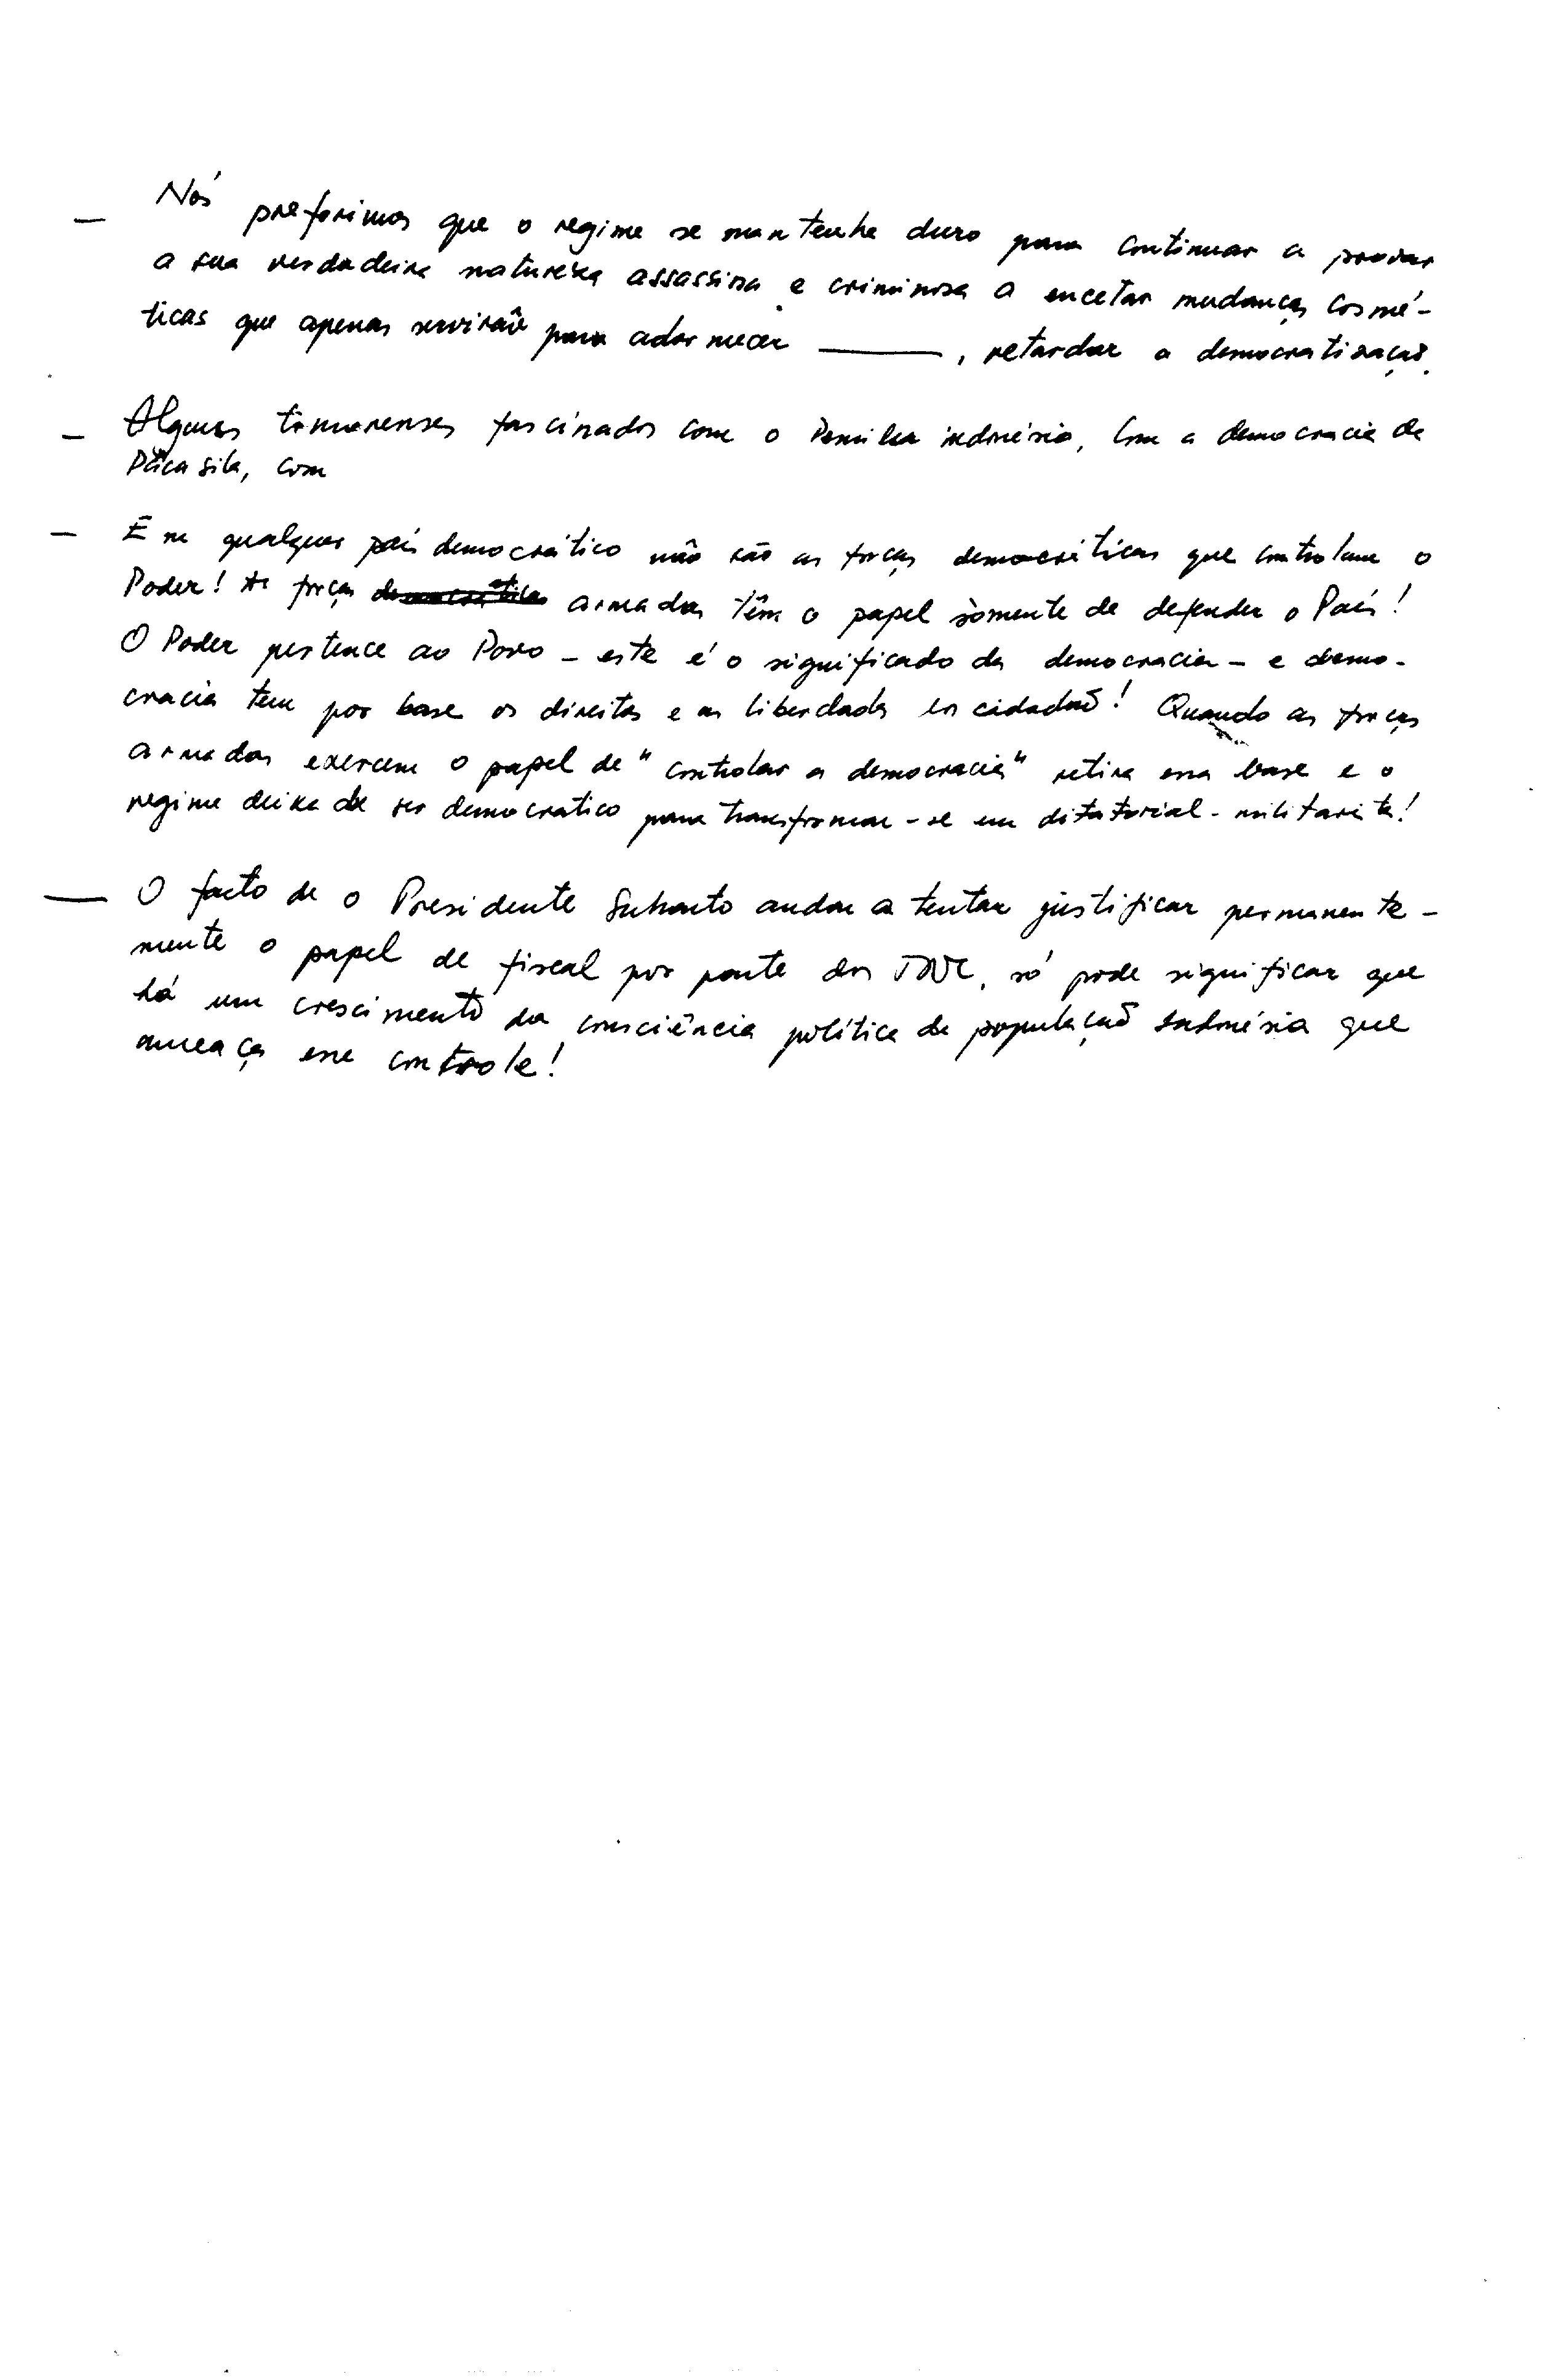 — Nós preferimos que o regime se mantenha duro para continuar a provar
a sua verdadeira natureza assassina e criminosa a encetar mudanças cosmé-
ticas que apenas servirão para adormecer ———, retardar a democratização.
— Alguns timorenses fascinados com o Pemilu indonésio, com a democracia de
Pancasila, com
— Em qualquer país democrático não são as forças democráticas que controlam o
Poder! As forças democráticas armadas têm o papel sòmente de defender o País!
O Poder pertence ao Povo – este é o significado da democracia – e demo-
cracia tem por base os direitos e as liberdades cidadão! Quando as forças
armadas exercem o papel de "controlar a democracia" retira essa base e o
regime deixa de ser democratico para transformar-se em ditatorial-militarista!
— O facto de o Presidente Suharto andar a tentar justificar permanente-
mente o papel de fiscal por parte das só pode significar que
há um crescimento da consciência política da população indonésia que
ameaça esse controle!